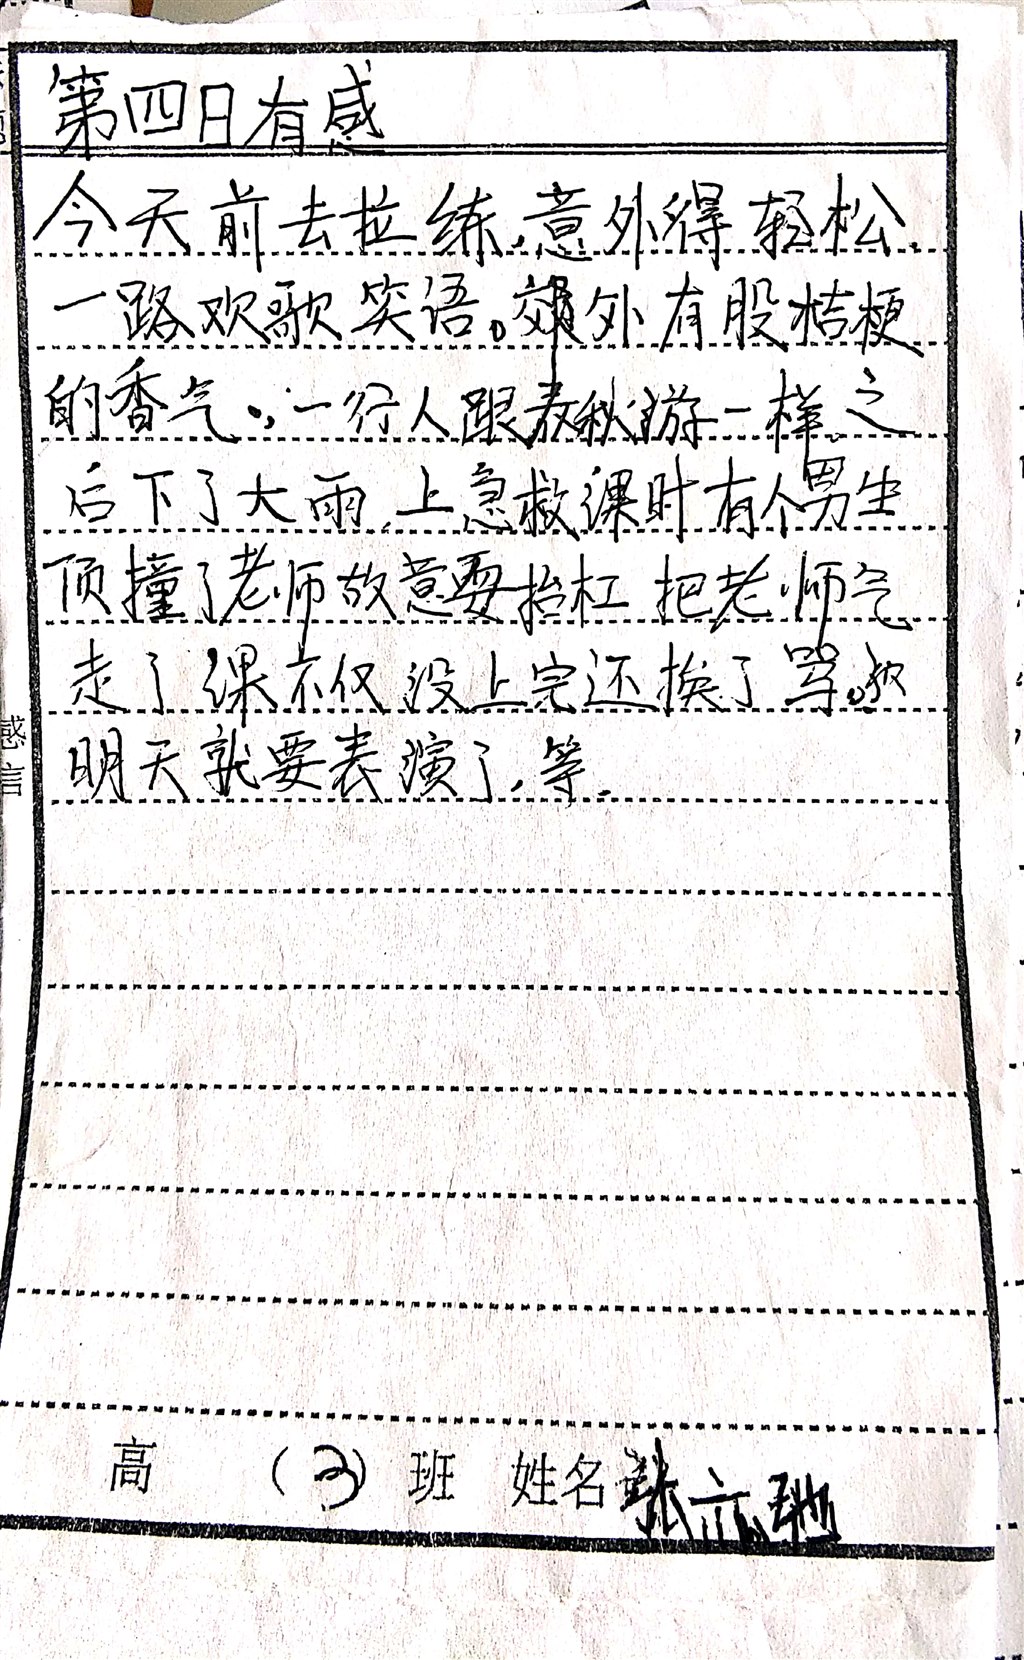 第四日有感
今天前去拉练,意外得轻松,
一路欢歌笑语。郊外有股桔梗
的香气,一行人跟秋游一样,之
后下了大雨,上急救课时有个男生
顶撞了老师故意要抬杠 把老师气
走了课不仅没上完还挨了骂。
明天就要表演了,等.
感言
高 (3) 班 姓名 张